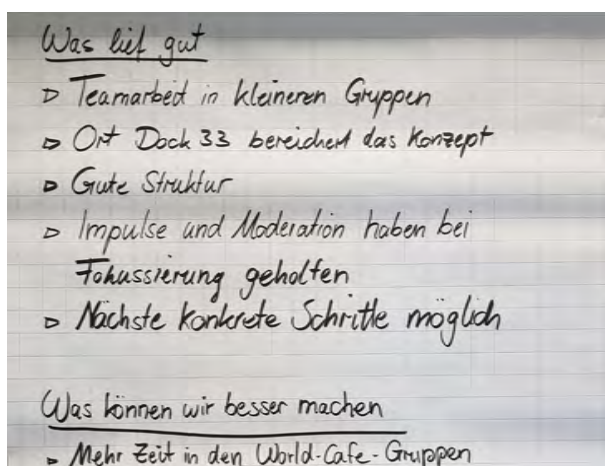 Was lief gut
▷ Teamarbeit in kleineren Gruppen
▷ Ort Dock 33 bereichert das Konzept
▷ Gute Struktur
▷ Impulse und Moderation haben bei
Fokussierung geholfen
▷ Nächste konkrete Schritte möglich
Was können wir besser machen
▷ Mehr Zeit in den World-Cafe-Gruppen